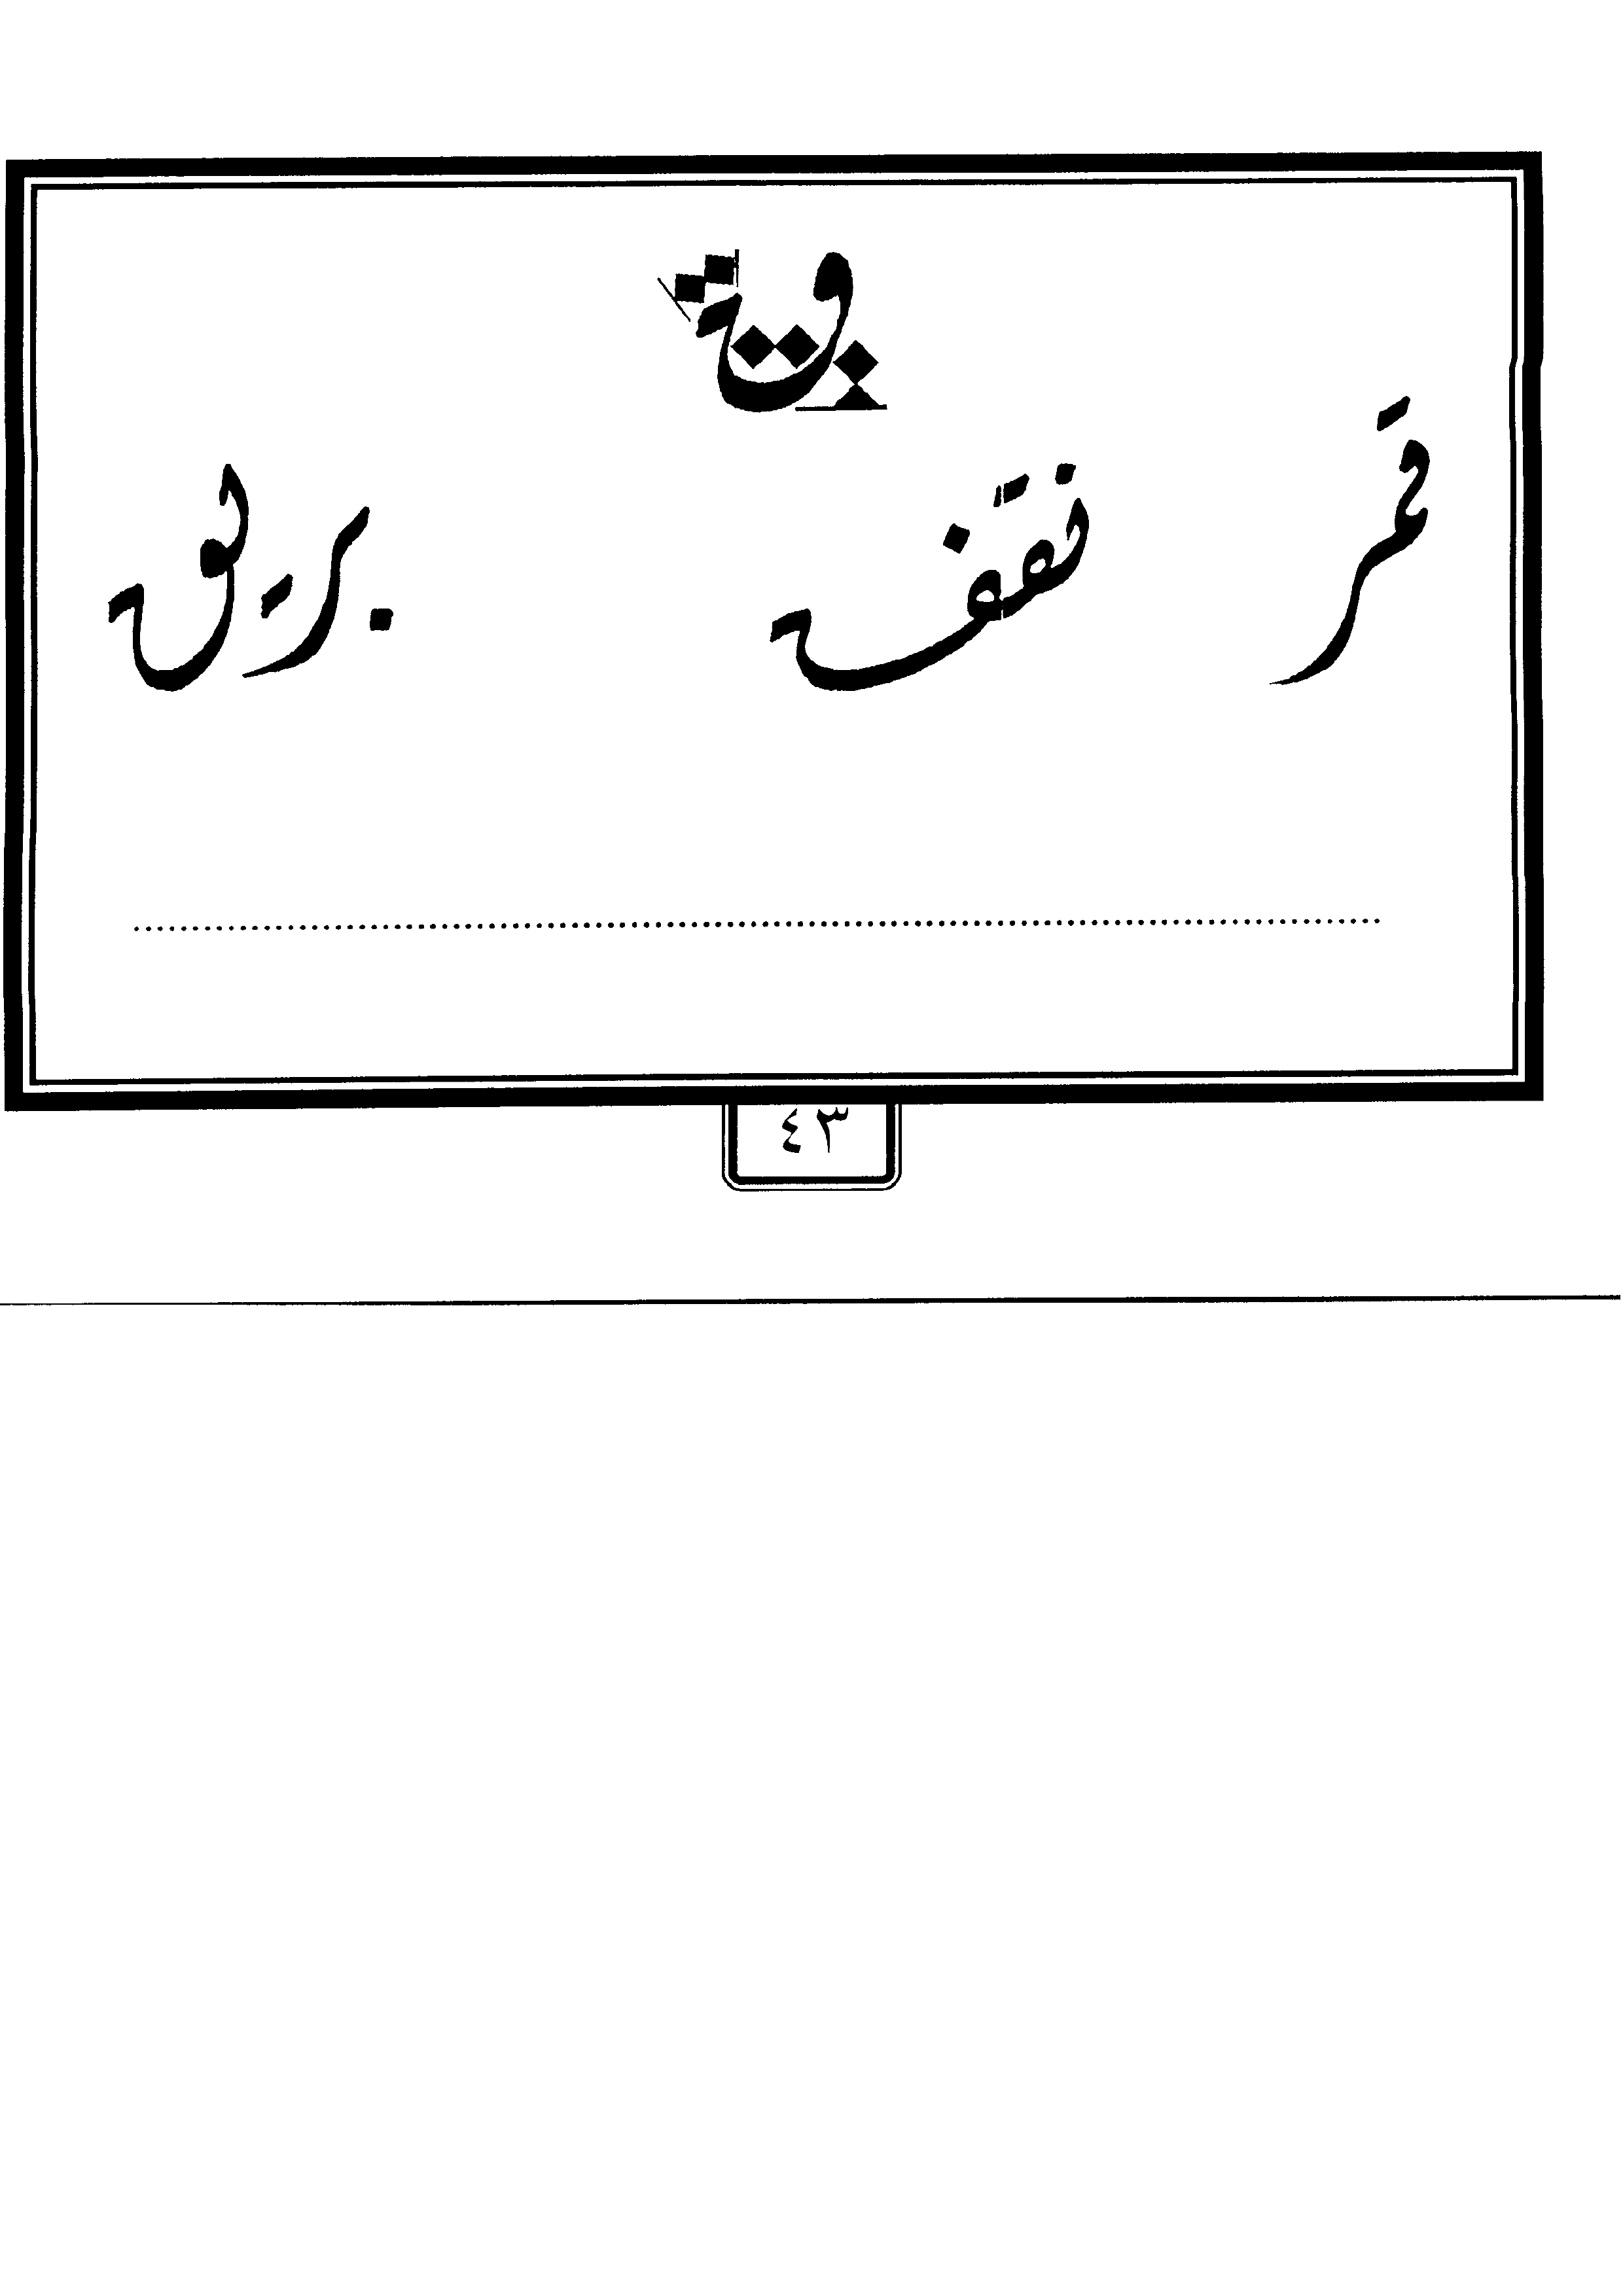 ق
قمر نقف بريق
٤٣